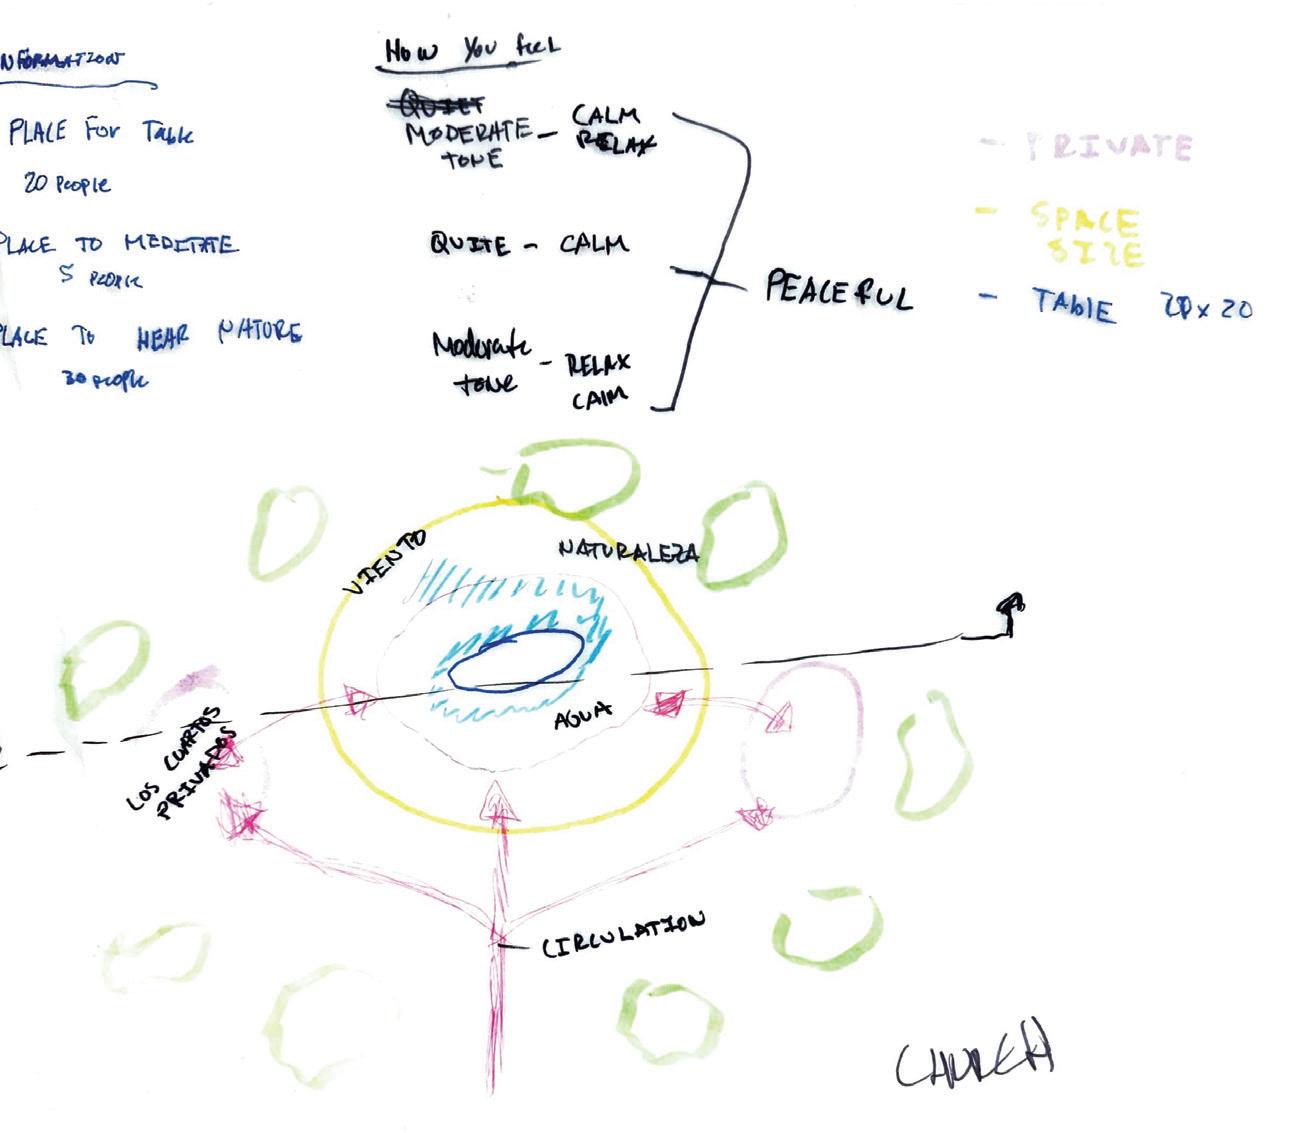 NFORMATION
PLACE FOR TABLE
20 PEOPLE
PLACE TO MEDITATE
5 PEOPLE
LACE TO HEAR NATURE
30 PEOPLE
How You feel
QUIET
MODERATE TONE – CALM RELAX
QUITE – CALM
Moderate tone – RELAX CALM
PEACEFUL
– PRIVATE
– SPACE
SIZE
– TABLE 20 x 20
VIENTO
NATURALEZA
AGUA
LOS CUARTOS
PRIVADOS
CIRCULATION
CHURCH